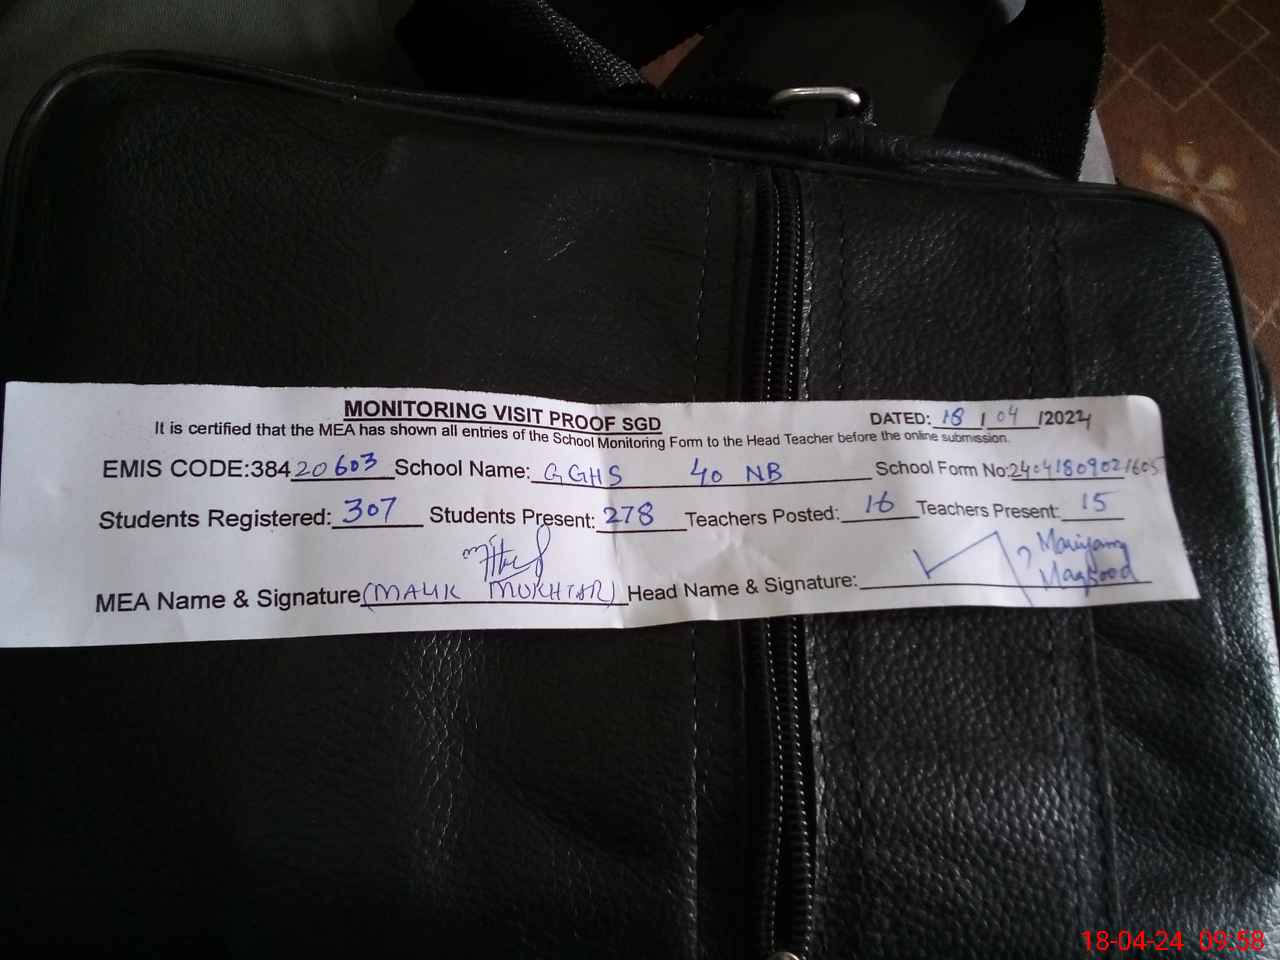 MONITORING VISIT PROOF SGD
DATED: 18 / 04 /2024
It is certified that the MEA has shown all entries of the School Monitoring Form to the Head Teacher before the online submission.
EMIS CODE:38420603 School Name: GGHS 40 NB School Form No:24041809021605
Students Registered: 307 Students Present: 278 Teachers Posted: 16 Teachers Present: 15
MEA Name & Signature (MALIK MUKHTAR) Head Name & Signature: Mariyam Maqsood
18-04-24 09:58